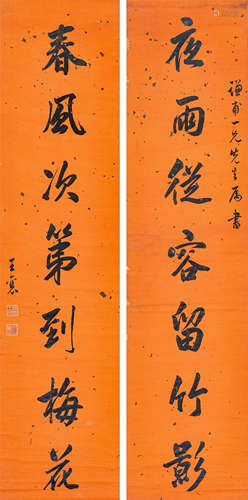 謙甫一兄先生属書
夜雨從容留竹影
春風次第到梅花
王